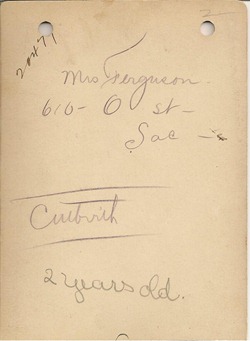 20477
Mrs Ferguson
616- O st-
Sac -
Culbirth
2 years old.